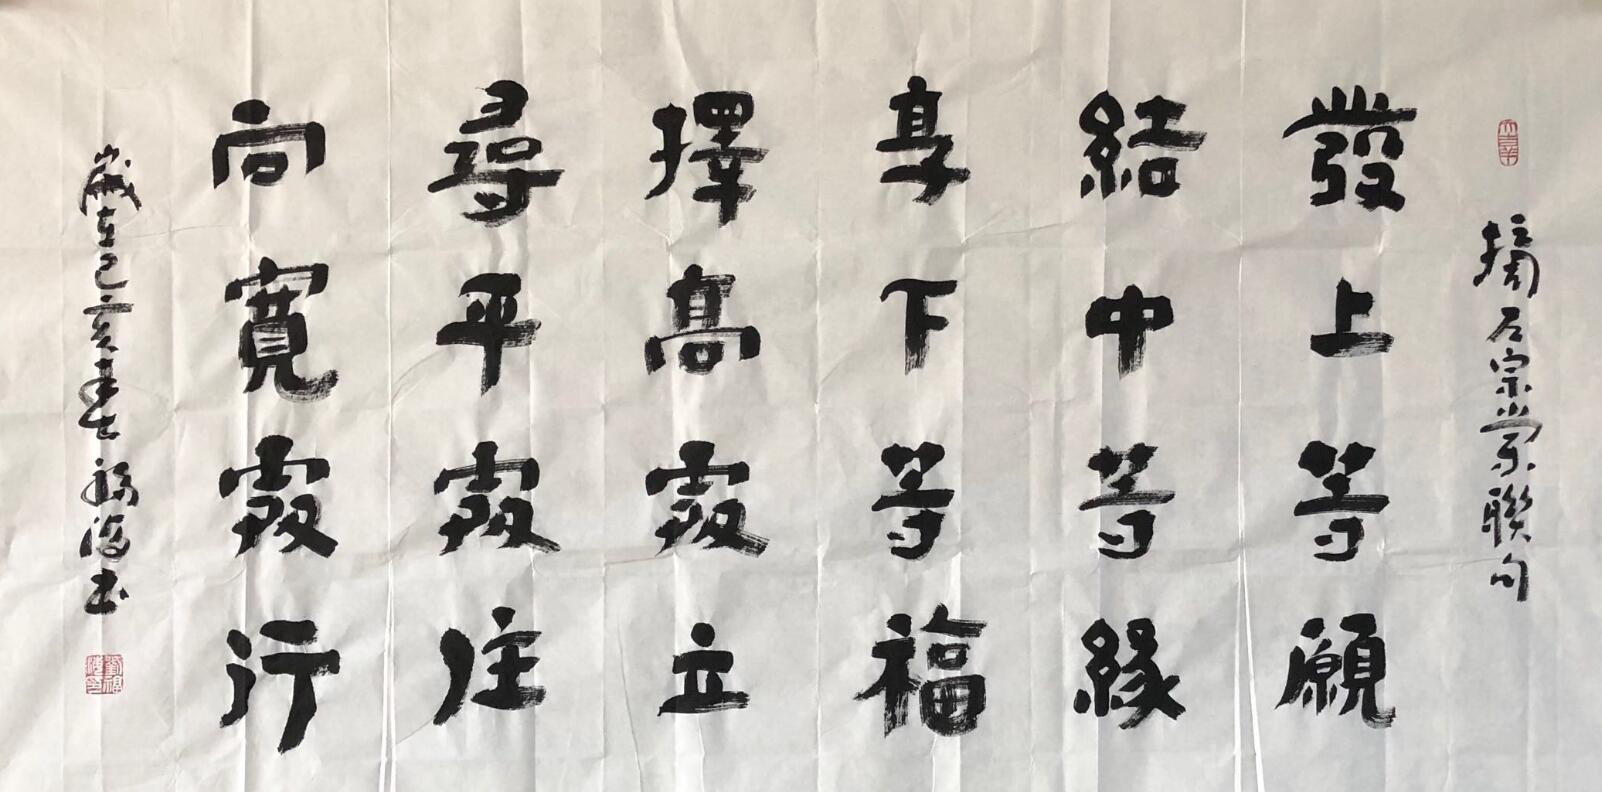 摘左宗棠聯句
發上等願
結中等緣
享下等福
擇高處立
尋平處住
向寬處行
歲在己亥春七福海書